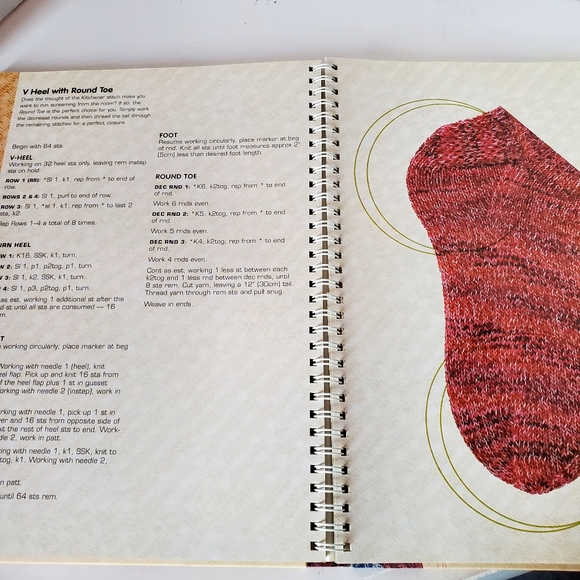 V Heel with Round Toe
Does the thought of the Kitchener stitch make you
want to run screaming from the room? If so, the
Round Toe is the perfect choice for you. Simply work
the decrease rounds and then thread the tail through
the remaining stitches for a perfect closure.
Begin with 64 sts.
V-HEEL
Working on 32 heel sts only, leaving rem instep
sts on hold:
ROW 1 (RS): *Sl 1, k1, rep from * to end of
row.
ROWS 2 & 4: Sl 1, purl to end of row.
ROW 3: Sl 1, *sl 1, k1, rep from * to last 2
sts, k2.
Rep Rows 1–4 a total of 8 times.
URN HEEL
W 1: K18, SSK, k1, turn.
W 2: Sl 1, p1, p2tog, p1, turn.
3: Sl 1, k2, SSK, k1, turn.
4: Sl 1, p3, p2tog, p1, turn.
as est, working 1 additional st after the
d st until all sts are consumed — 18
m.
T
working circularly, place marker at beg
Working with needle 1 (heel), knit
eel flap. Pick up and knit 16 sts from
f the heel flap plus 1 st in gusset
orking with needle 2 (instep), work in
rking with needle 1, pick up 1 st in
er and 16 sts from opposite side of
it the rest of heel sts to end. Work-
dle 2, work in patt.
ng with needle 1, k1, SSK, knit to
tog, k1. Working with needle 2,
n patt.
until 64 sts rem.
FOOT
Resume working circularly, place marker at beg
of rnd. Knit all sts until foot measures approx 2"
(5cm) less than desired foot length.
ROUND TOE
DEC RND 1: *K6, k2tog, rep from * to end
of rnd.
Work 6 rnds even.
DEC RND 2: *K5, k2tog, rep from * to end
of rnd.
Work 5 rnds even.
DEC RND 3: *K4, k2tog, rep from * to end
of rnd.
Work 4 rnds even.
Cont as est, working 1 less st between each
k2tog and 1 less rnd between dec rnds, until
8 sts rem. Cut yarn, leaving a 12" (30cm) tail.
Thread yarn through rem sts and pull snug.
Weave in ends.